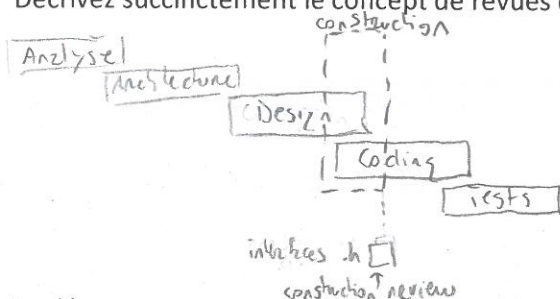 Décrivez succinctement le concept de revues
construction
Analyse
Architecture
Design
Coding
Tests
interfaces .h
construction reviews